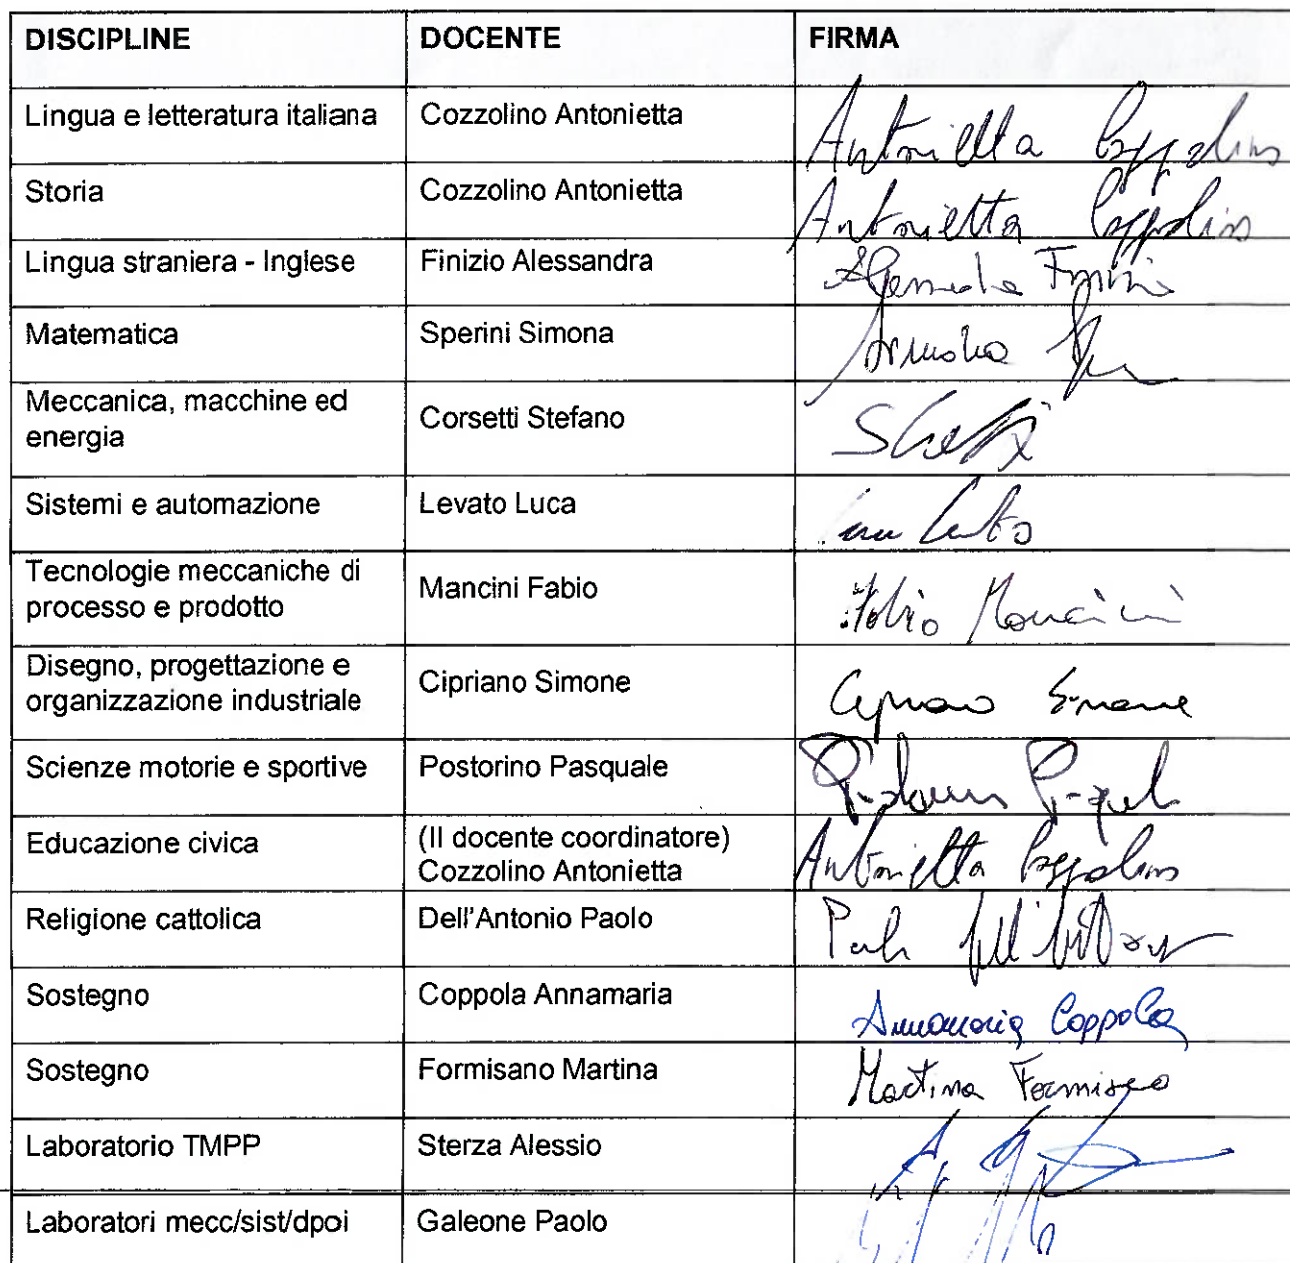 DISCIPLINE DOCENTE FIRMA
Lingua e letteratura italiana Cozzolino Antonietta Antonietta Cozzolino
Storia Cozzolino Antonietta Antonietta Cozzolino
Lingua straniera - Inglese Finizio Alessandra Alessandra Finizio
Matematica Sperini Simona Simona
Meccanica, macchine ed
energia
Corsetti Stefano
Sistemi e automazione Levato Luca Luca Levato
Tecnologie meccaniche di
processo e prodotto
Mancini Fabio Fabio Mancini
Disegno, progettazione e
organizzazione industriale
Cipriano Simone Cipriano Simone
Scienze motorie e sportive Postorino Pasquale Postorino Pasquale
Educazione civica
(Il docente coordinatore)
Cozzolino Antonietta
Antonietta Cozzolino
Religione cattolica Dell'Antonio Paolo Paolo Dell'Antonio
Sostegno Coppola Annamaria Annamaria Coppola
Sostegno Formisano Martina Martina Formisano
Laboratorio TMPP Sterza Alessio
Laboratori mecc/sist/dpoi Galeone Paolo